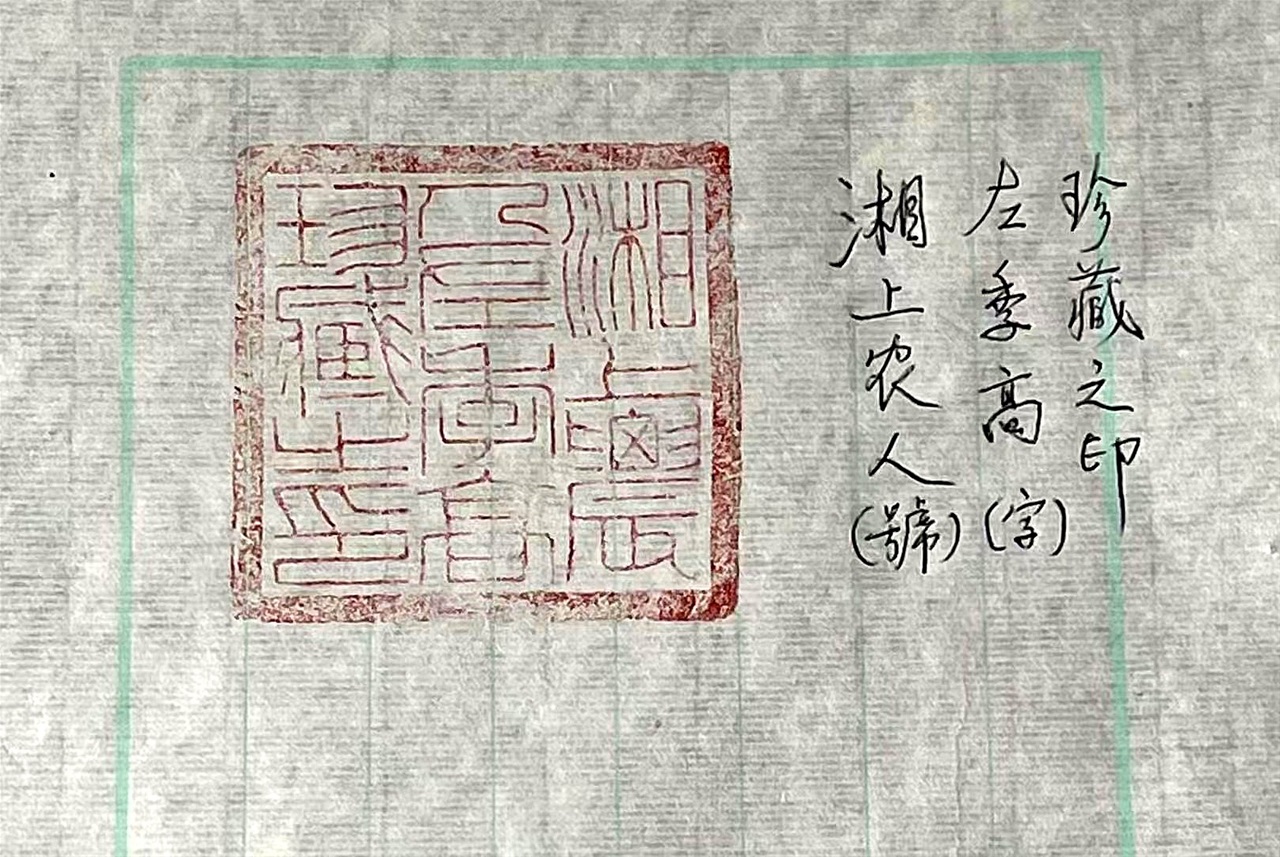 湘上農
人左季高
珍藏之印
湘上农人(號)
左季高(字)
珍藏之印